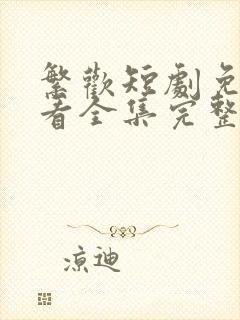 繁歡短劇免
看全集完整
涼迪